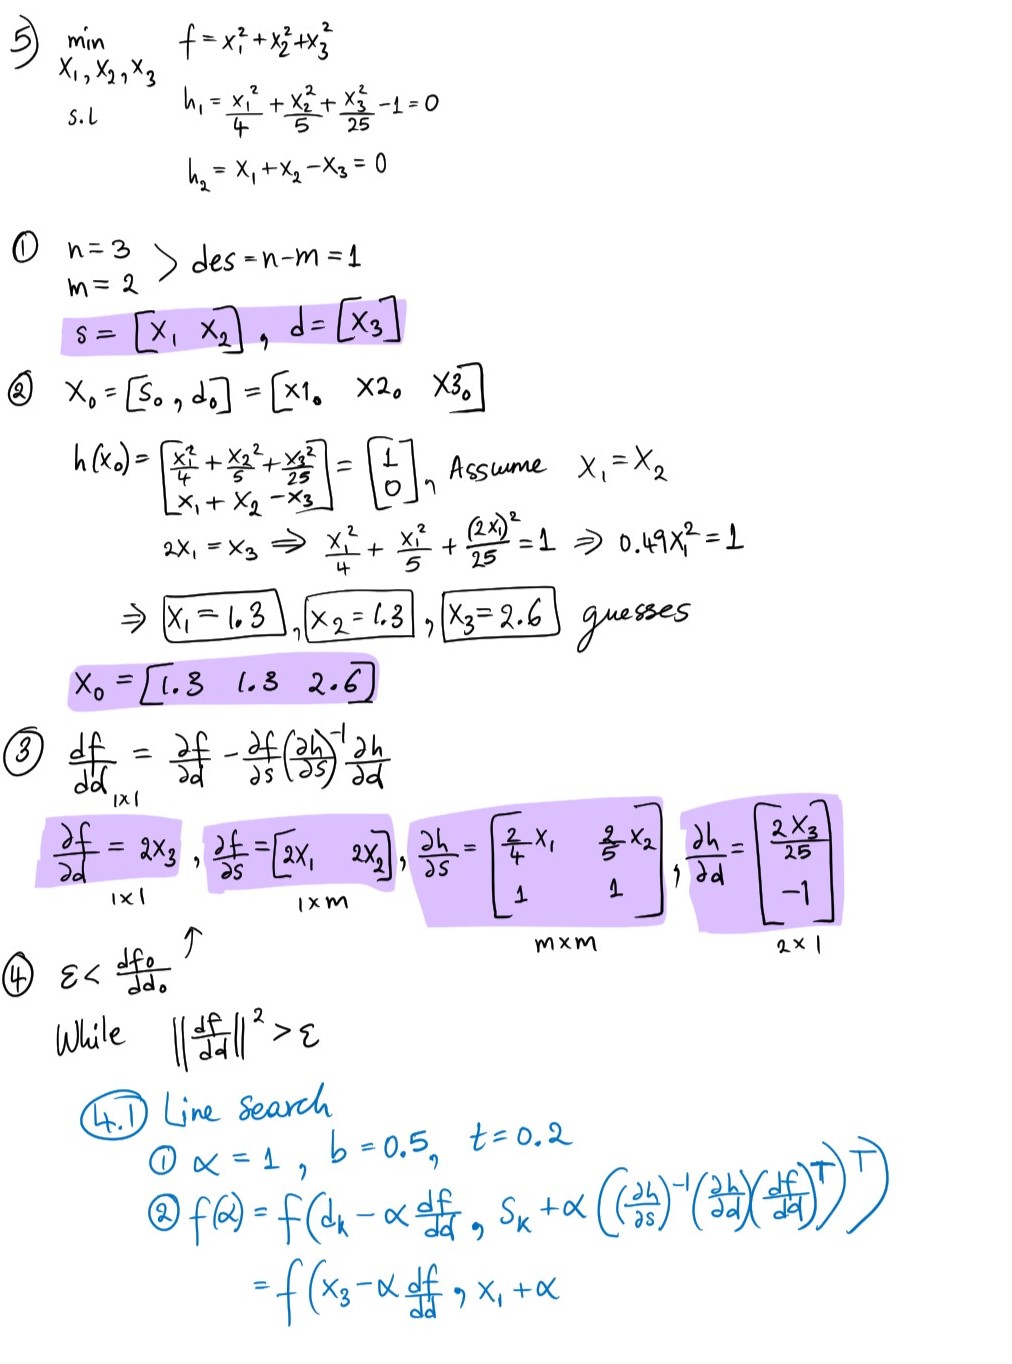 5) min f = x₁² + x₂² + x₃²
x₁, x₂, x₃
s.t h₁ = x₁²/4 + x₂²/5 + x₃²/25 - 1 = 0
h₂ = x₁ + x₂ - x₃ = 0
① n = 3
m = 2 > des = n - m = 1
s = [x₁ x₂], d = [x₃]
② x₀ = [s₀, d₀] = [x1₀ x2₀ x3₀]
h(x₀) = [x₁²/4 + x₂²/5 + x₃²/25; x₁ + x₂ - x₃] = [1; 0], Assume x₁ = x₂
2x₁ = x₃ ⇒ x₁²/4 + x₁²/5 + (2x₁)²/25 = 1 ⇒ 0.49x₁² = 1
⇒ x₁ = 1.3, x₂ = 1.3, x₃ = 2.6 guesses
x₀ = [1.3 1.3 2.6]
③ df/dd = ∂f/∂d - ∂f/∂s (∂h/∂s)⁻¹ ∂h/∂d
1x1
∂f/∂d = 2x₃, ∂f/∂s = [2x₁ 2x₂], ∂h/∂s = [2/4 x₁ 2/5 x₂; 1 1], ∂h/∂d = [2x₃/25; -1]
1x1 1xm mxm 2x1
④ ε < df₀/dd₀ ↑
While ||df/dd||² > ε
4.1 Line Search
① α = 1, b = 0.5, t = 0.2
② f(α) = f(dₖ - α df/dd, Sₖ + α((∂h/∂s)⁻¹(∂h/∂d)(df/dd)ᵀ)ᵀ)
= f(x₃ - α df/dd, x₁ + α